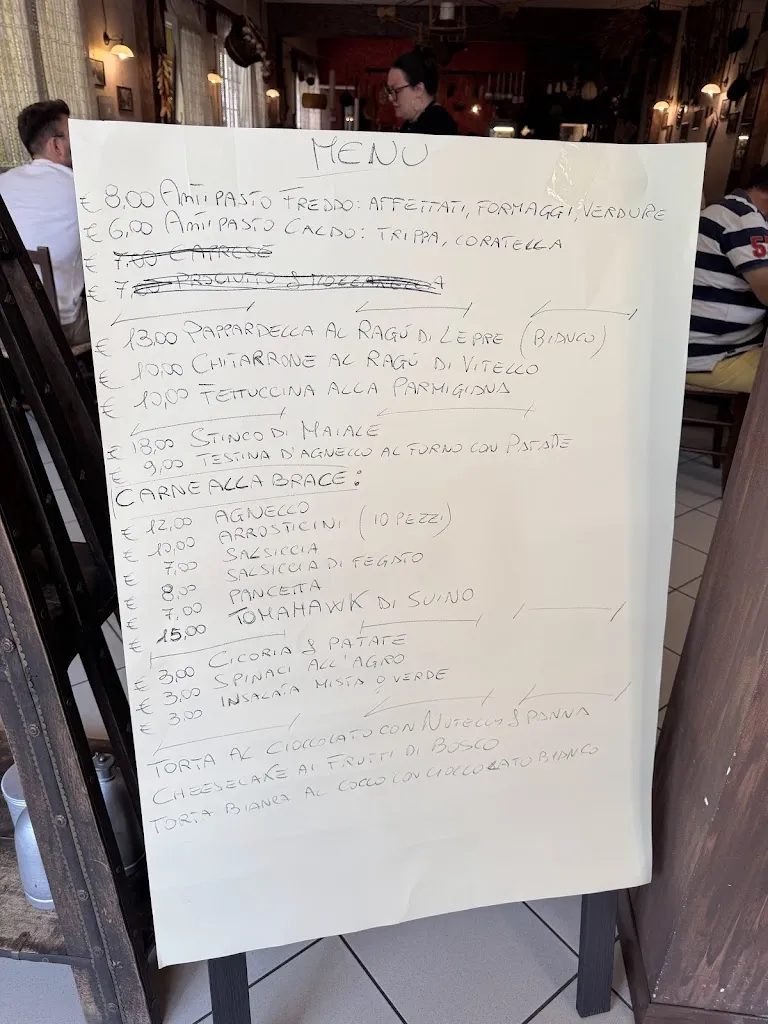 MENU
€ 8,00 ANTIPASTO FREDDO: AFFETTATI, FORMAGGI, VERDURE
€ 6,00 ANTIPASTO CALDO: TRIPPA, CORATELLA
€ 7,00 CAPRESE
€ 7,00 PROSCIUTTO & MOZZARELLA
€ 13,00 PAPPARDELLA AL RAGÙ DI LEPRE (BIANCO)
€ 10,00 CHITARRONE AL RAGÙ DI VITELLO
€ 10,00 FETTUCCINA ALLA PARMIGIANA
€ 18,00 STINCO DI MAIALE
€ 9,00 TESTINA D'AGNELLO AL FORNO CON PATATE
CARNE ALLA BRACE:
€ 12,00 AGNELLO
€ 10,00 ARROSTICINI (10 PEZZI)
€ 7,00 SALSICCIA
€ 8,00 SALSICCIA DI FEGATO
€ 7,00 PANCETTA
€ 15,00 TOMAHAWK DI SUINO
€ 3,00 CICORIA & PATATE
€ 3,00 SPINACI ALL'AGRO
€ 3,00 INSALATA MISTA O VERDE
TORTA AL CIOCCOLATO CON NUTELLA & PANNA
CHEESECAKE AI FRUTTI DI BOSCO
TORTA BIANCA AL COCCO CON CIOCCOLATO BIANCO
5